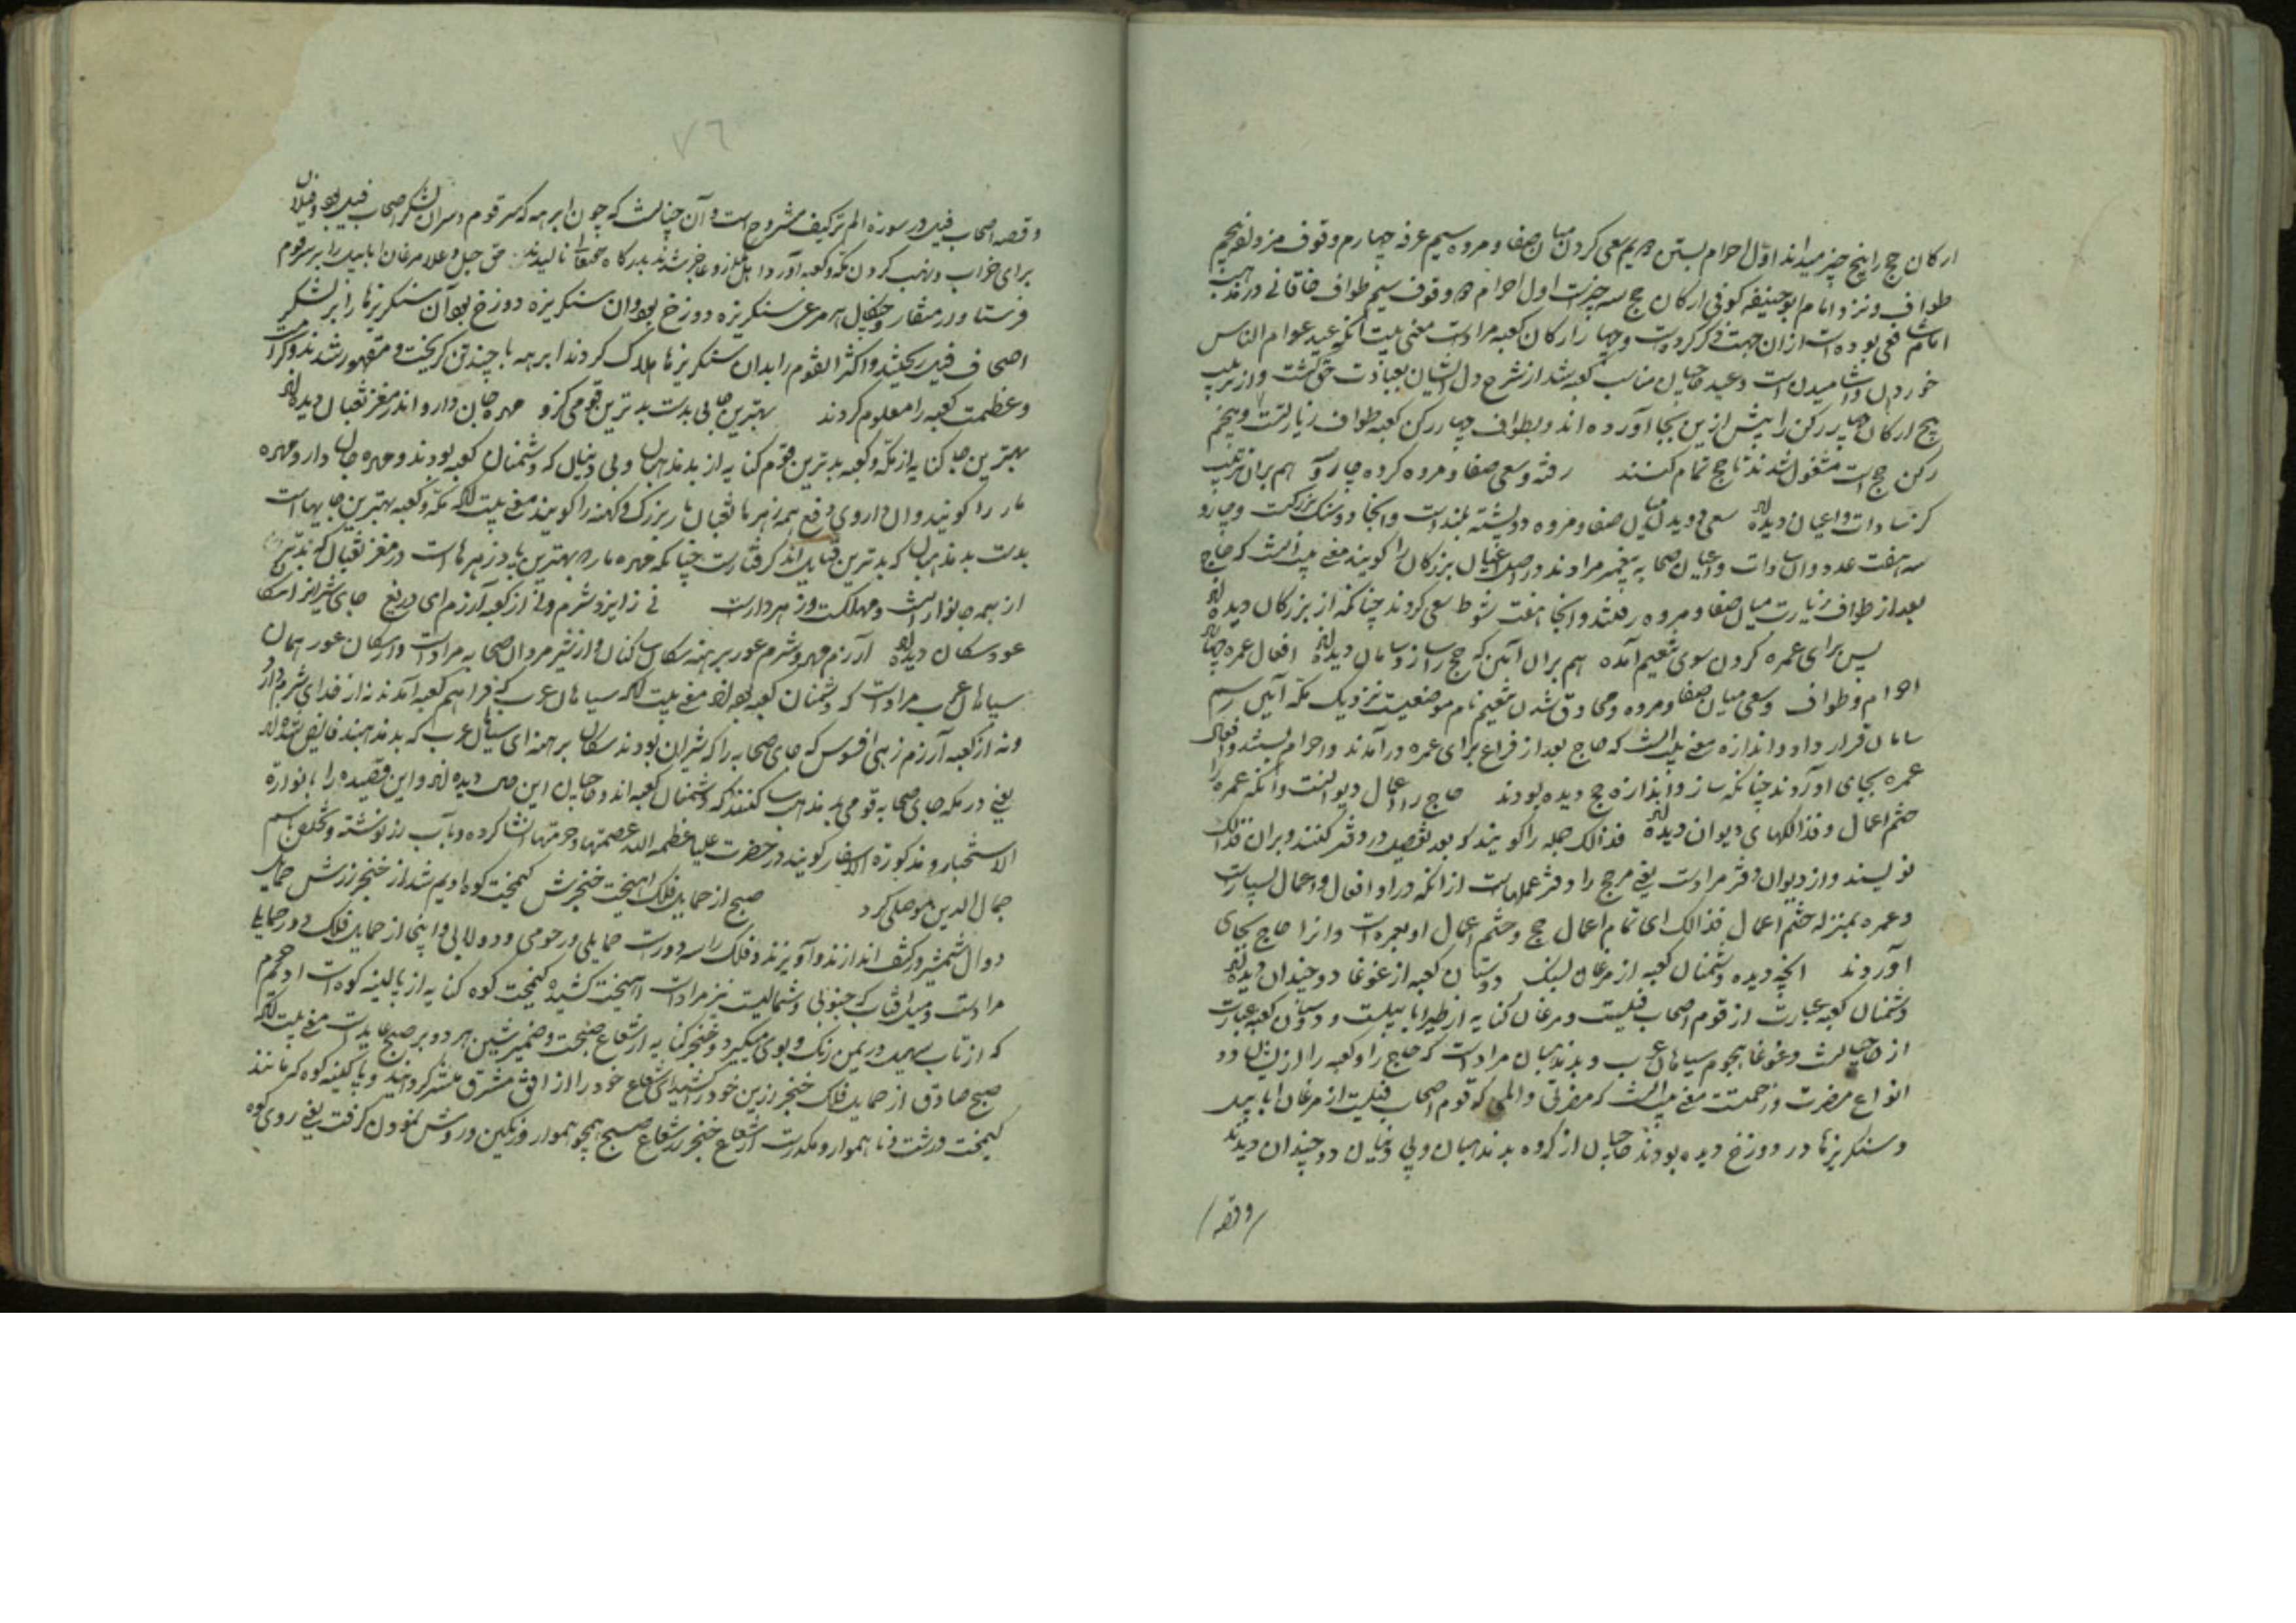 ارکان حج را پنج چیز میدانند اول احرام بستن دویم سعی کردن میان صفا و مروه سیم عرفه چهارم وقوف مزدلفه پنجم
طواف و نزد امام ابو حنیفه کوفی ارکان حج سه چیزست اول احرام دوم وقوف سیم طواف خاقانی در مذهب
امام شافعی بوده است از آن جهت ذکر کردست و چهار ارکان کعبه مرادست معنی بیت آنکه عید عوام الناس
خوردن و آشامیدن است و عید حاجیان مناسب کعبه شد از شرح دل ایشان بعبادت حق گشت و از ترتیب
پنج ارکان چار رکن را پیش ازین بجا آورده اند و بطواف چهار رکن کعبه طواف زیارتست و پنجم
رکن حج است مشغول شدند تا حج تمام کنند رفته و سعی صفا و مروه کرده چار و سه هم بران ترتیب
کز سادات و اعیان دیده اند سعی دویدن میان صفا و مروه دو پشته بلند است و آنجا دو سنگ بزرگست و چار و
سه هفت عدد و از سادات و اعیان صحابه پیغمبر مرادند و در اصل اعیان بزرگان را گویند معنی بیت آنست که حاج
بعد از طواف زیارت میان صفا و مروه رفتند و آنجا هفت شوط سعی کردند چنانکه از بزرگان دیده اند
پس برای عمره کردن سوی تنعیم آمده هم بران آیین که حج را ساز و سامان دیده اند افعال عمره چهار
احرام و طواف و سعی میان صفا و مروه و محلوق شدن تنعیم نام موضعیست نزدیک مکه آیین رسم
سامان قرار داد و اندازه معنی بیت آنست که حاج بعد از فراغ برای عمره در آمدند و احرام بستند و افعال
عمره بجای آوردند چنانکه ساز و اندازه حج دیده بودند حاج را دیوان اعمال است وانگه عمره را
ختم اعمال و فذالکهای دیوان دیده اند فذالک جمله را گویند که بعد تفصیل در دفتر کنند و بران فذالک
نویسند و از دیوان دفتر مرادست یعنی مر حج را دفتر عملهاست از آنکه در او افعال و اعمال بسیارست
و عمره بمنزله ختم اعمال فذالک ای تمام اعمال حج و ختم اعمال او بعمره است و آنرا حاج بجای
آوردند آنچه دیده دشمنان کعبه از مرغان بسنگ دوستان کعبه از غوغا دو چندان دیده اند
دشمنان کعبه عبارت از قوم اصحاب فیلست و مرغان کنایه از طیرا ابابیلست و دوستان کعبه عبارت
از حاجیانست و غوغا هجوم سیاهان عرب و بدمذهبان مرادست که حاج را و کعبه را ازیشان دو
انواع مضرت و زحمتست معنی بیت آنست که مضرتی و المی که قوم اصحاب فیلست از مرغان ابابیل
و سنگریزها در دوزخ دیده بودند حاجیان از گروه بدمذهبان و بی دینان دو چندان دیدند
وقصه
٧٦
و قصه اصحاب فیل در سوره الم ترکیف مشروح است و آن چنانست که چون ابرهه که سر قوم و سران لشکر اصحاب فیل بود و فیلان
برای خراب و نهب کردن مکه و کعبه آورد اهل مکه ازو عاجز شدند بدرگاه حقتعالی نالیدند حق جل و علا مرغان ابابیل را بر سر قوم
فرستاد و در منقار و چنگال هر مرغی سنگریزه دوزخ بود و آن سنگریزه دوزخ بود آن سنگریزها را بر لشکر
اصحاب فیل ریختند و اکثر القوم را بدان سنگریزها هلاک کردند ابرهه با چند تن گریخت و مقهور شدند و کرامت
و عظمت کعبه را معلوم کردند بهترین جایی بدست بدترین قومی گرو مهره جان دارو اندر مغز ثعبان دیده اند
بهترین جا کنایه از مکه و کعبه بدترین قوم کنایه از بدمذهبان و بی دینان که دشمنان کعبه بودند و مهره جان دارو مهره
مار را گویند و آن داروی دفع همه زهرها ثعبان مار بزرگ و کهنه را گویند معنی بیت آنکه مکه و کعبه بهترین جایهاست
بدست بدمذهبان که بدترین قبایل اند گرفتارست چنانکه مهره مار که بهترین پادزهرهاست در مغز ثعبان که بدترین
از همه جانوارنست و مهلکست و زهردارست نی ز ایزد شرم و نی از کعبه آزرم ای دریغ جای شیران را سگان
عور سگان دیده اند آزرم مهر و شرم عور برهنه سگان ساکنان و از شیر مردان صحابه مرادست و از سگان عور همان
سیاهان عرب مرادست که دشمنان کعبه بوده اند معنی بیت آنکه سیاهان عرب که فراهم کعبه آمدند نه از خدای شرم دارند
و نه از کعبه آزرم زهی افسوس که جای صحابه را که شیران بودند سگان برهنه ای سیاهان عرب که بدمذهبند قابض شده اند
یعنی در مکه جای صحابه قومی بدمذهب سکنند که دشمنان کعبه اند و حاجیان این حال دیده اند و این قصیده را باکورة
الاستخبار و مذکورة الاسفار گویند در حضرت علیا عظمه الله عصمتها و حرمتها انشا کرده و بآب زر نوشته و تخلص باسم
جمال الدین موصلی کرد صبح از حمایل فلک آهیخت خنجرش کیمخت کوه ادیم شد از خنجر زرش حمایل
دوال شمشیر در کتف اندازند و آویزند و فلک را سه دورست حمایلی و رحوی و دولابی و اینجا از حمایل فلک دور حمایلی
مرادست و میل آفتاب که جنوبی و شمالیست نیز مرادست آهیخت کشیده کیمخت کوه کنایه از بالینه کوه است ادیم چرم
که از تاب سهیل در یمن رنگ و بوی میگیرد و خنجر کنایه از شعاع صبحست و ضمیر شین هر دو بر صبح عایدست معنی بیت آنکه
صبح صادق از حمایل فلک خنجر زرین خود را کشید ای شعاع خود را از افق مشرق منتشر گردانید و کوه که مانند
کیمخت درشت و ناهموار و مکدرست از شعاع خنجر زر شعاع صبح همچو هموار و رنگین و روشن نمودن گرفت یعنی روی کوه